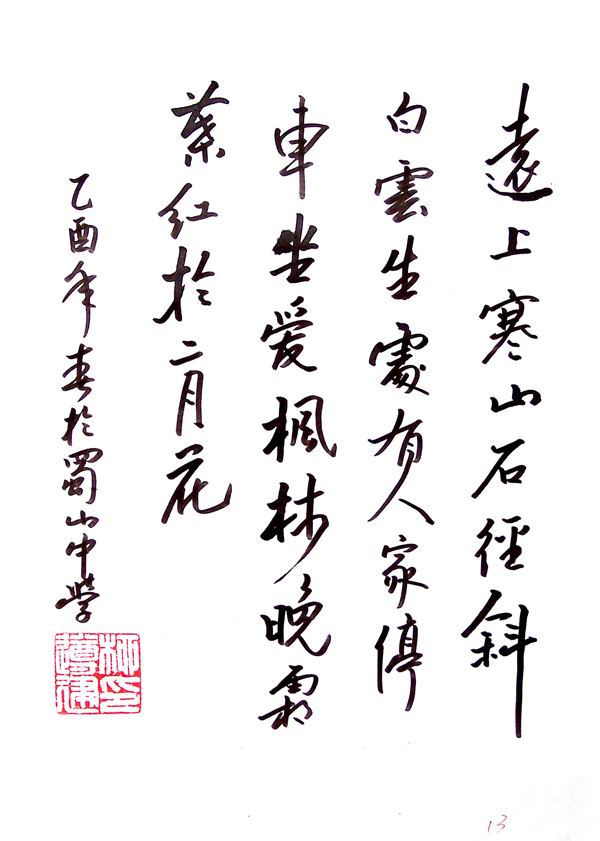 遠上寒山石徑斜
白雲生處有人家停
車坐爱楓林晚霜
葉紅於二月花
乙酉年春於蜀山中學
13